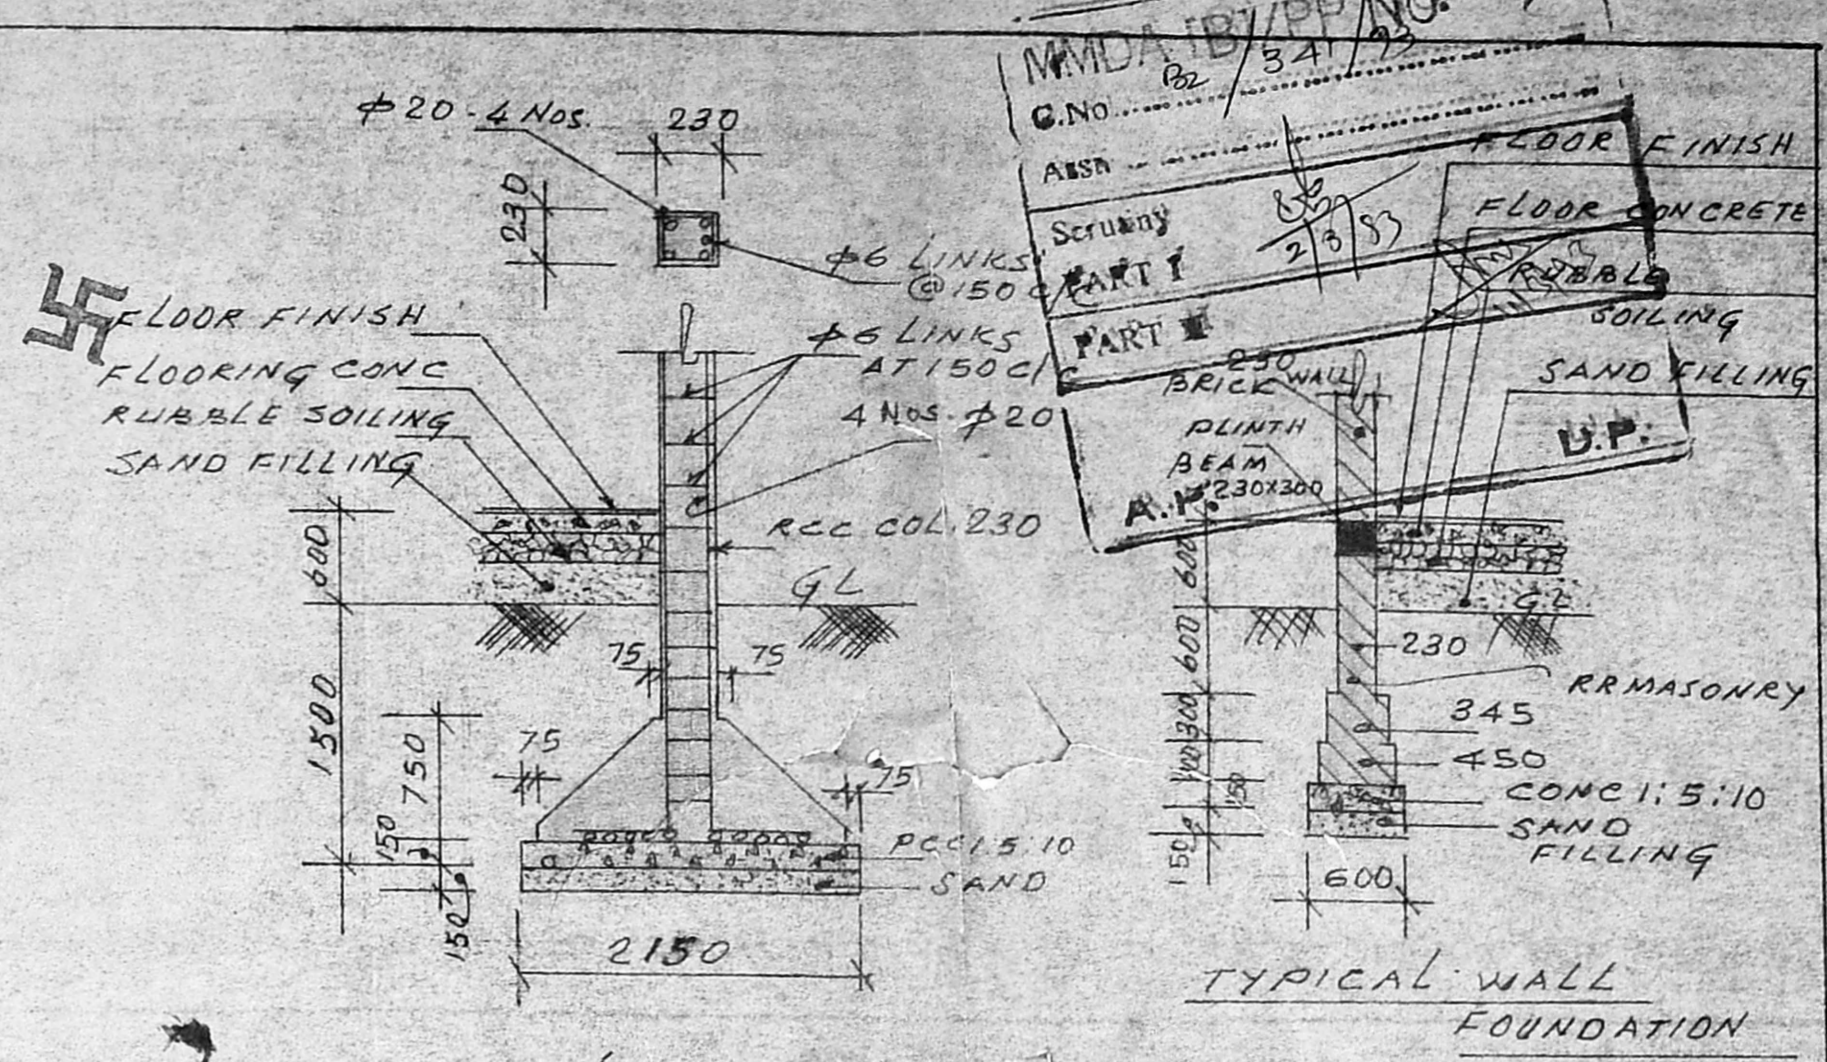 MMDA (B)/PP/NO.
C.No. B2/341/93
Assn
Scrutiny
2/3/93
PART I
PART II
A.P.
D.P.
φ20-4 Nos.
230
230
φ6 LINKS
@150 C/C
FLOOR FINISH
FLOORING CONC
RUBBLE SOILING
SAND FILLING
φ6 LINKS
AT 150 C/C
4 Nos. φ20
RCC COL. 230
GL
600
1500
750
150
150
75
75
75
75
PCC 1:5:10
SAND
2150
FLOOR FINISH
FLOOR CONCRETE
RUBBLE
SOILING
SAND FILLING
230
BRICK WALL
PLINTH
BEAM
230x300
GL
600
600
300
150
150
230
RR MASONRY
345
450
CONC 1:5:10
SAND
FILLING
600
TYPICAL WALL
FOUNDATION